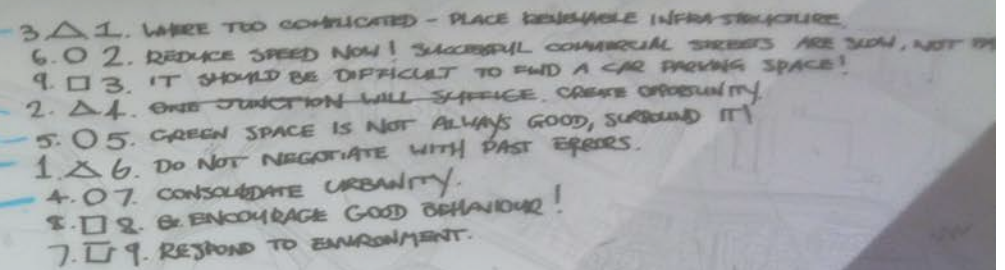 3 △ 1. WHERE TOO COMPLICATED - PLACE RENEWABLE INFRASTRUCTURE.
6. O 2. REDUCE SPEED NOW! SUCCESSFUL COMMERCIAL STREETS ARE SLOW, NOT
9. □ 3. IT SHOULD BE DIFFICULT TO FIND A CAR PARKING SPACE!
2. △ 4. ONE JUNCTION WILL SUFFICE. CREATE OPPORTUNITY
5. O 5. GREEN SPACE IS NOT ALWAYS GOOD, SURROUND IT!
1. △ 6. DO NOT NEGOTIATE WITH PAST ERRORS.
4. O 7. CONSOLIDATE URBANITY.
8. □ 8. ENCOURAGE GOOD BEHAVIOUR!
7. □ 9. RESPOND TO ENVIRONMENT.